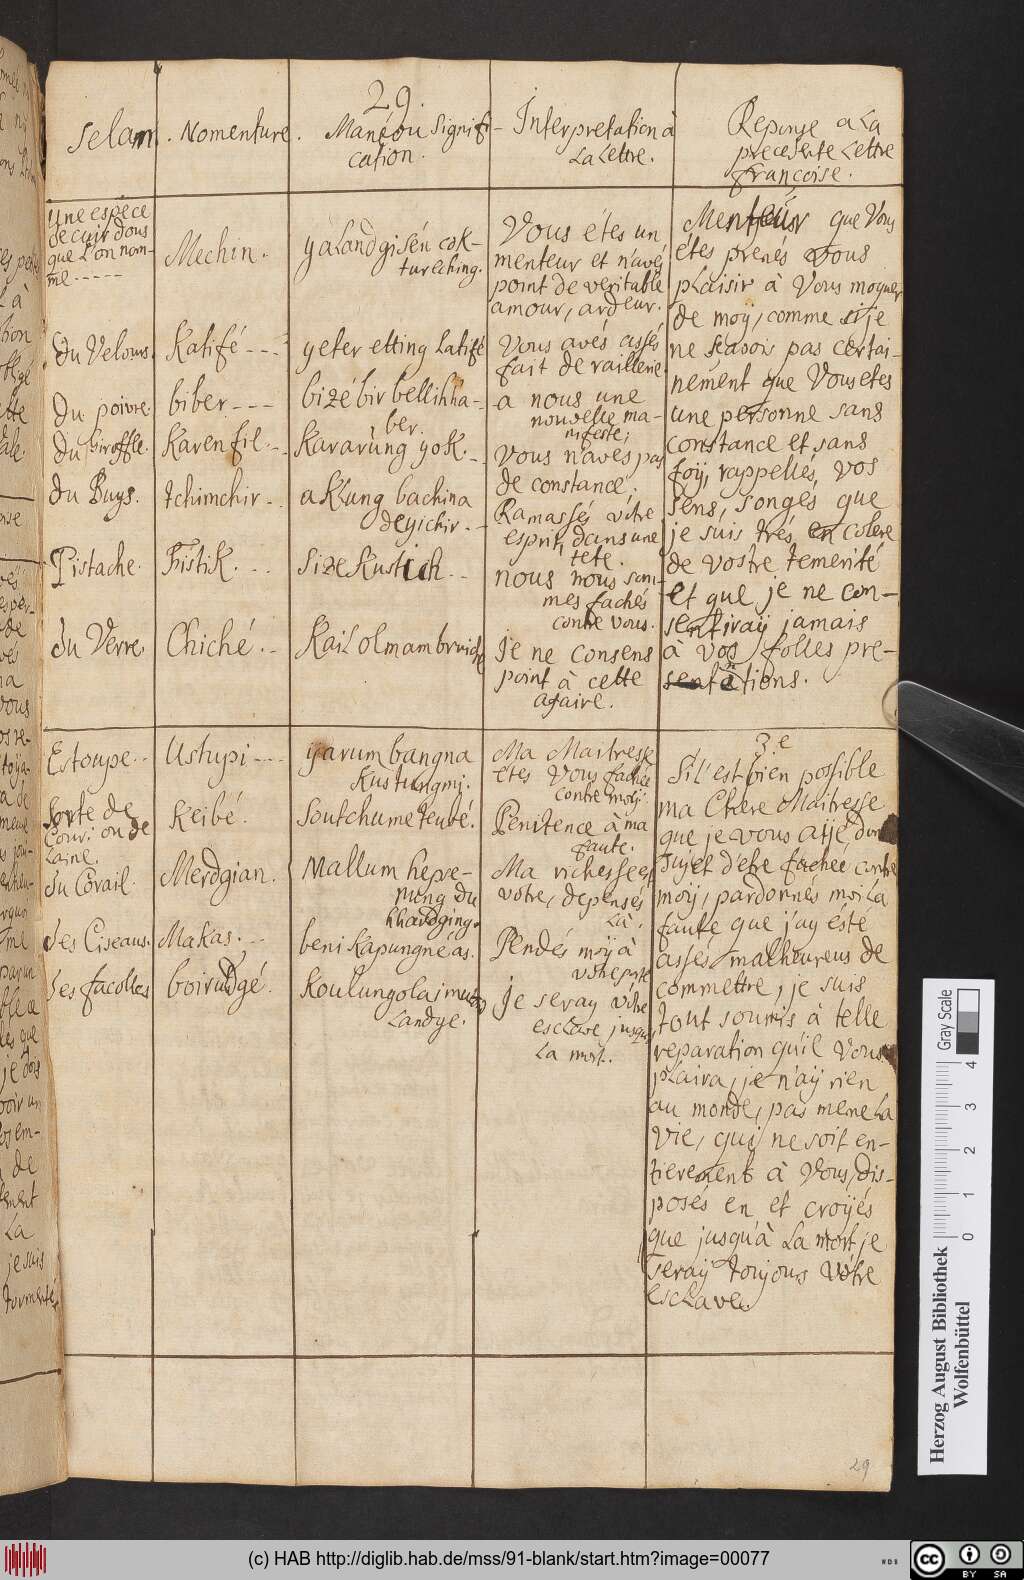 29.
Selam.
Nomenture.
Manéou Signifi-
cation.
Interpretation à
La Lettre.
Reponse a La
precedente Lettre
françoise.
Une espéce
de cuir dous
que l'on nom-
me -----
Mechin.
yalandgisén cok-
tureching.
Vous étes un
menteur et n'avés
point de veritable
amour, ardeur.
Menteur que Vous
étes prenés Vous
plaisir à Vous moquer
de moÿ, comme si je
ne scavois pas certai-
nement que Vous etes
une personne sans
constance et sans
foÿ, rappelles, vos
sens, songes que
je suis trés, en colere
de vostre temerité
et que je ne con-
sentiraÿ jamais
à vos folles pre-
sentations.
du Velours.
Katifé ---
yeter etting latifé
Vous avés assés
fait de raillerie.
du poivre.
biber ---
bizé bir bellihha-
ber.
a nous une
nouvelle ma-
nifeste;
du Giroffle.
Karenfil. --
Kararüng yok. -
Vous n'avés pas
de constance.
du Buys.
tchimchir --
aklung bachina
deyichir --
Ramassés vôtre
esprit dans une
tete.
Pistache.
Fistik. ---
Size Kustich --
nous nous som-
mes fachés
contre vous.
du Verre.
Chiché. --
Kail olmam bruiche
Je ne consens
point à cette
afaire.
Estoupe --
Ustupi ---
yarum bangna
Kustungmi.
Ma Maitresse
étes Vous fachée
contre moÿ.
3.e
S'il est bien possible
ma Chere Maitresse
que je vous aÿe, donné
sujet d'etre fachée contre
moÿ, pardonnés moi La
faute que j'ay éste
assés malheureus de
commettre, je suis
tout soumis à telle
reparation qu'il Vous
plaira, je n'aÿ rien
au monde, pas meme La
vie, qui ne soit en-
tierement à Vous, dis-
posés en et croyés
que jusqu'à La mort je
seraÿ toujours Vôtre
esclave.
Sorte de
Couv: on de
Laine.
Keibé.
Soutchume teubé.
Penitence à ma
faute.
du Corail.
Merdgian.
Mallum hepse-
ning du
hhardging.
Ma richesse est
votre, depensés
Là.
des Ciseaus.
Makas. --
beni Kapungné as.
Pendés moÿ à
vôtre porte
des facolles
boirudgé.
Koulung olaimeutd
Landge.
Je seray vôtre
esclave jusqu'à
La mort.
29
Gray Scale
0 1 2 3 4
Herzog August Bibliothek
Wolfenbüttel
(c) HAB http://diglib.hab.de/mss/91-blank/start.htm?image=00077
WDB
cc BY SA